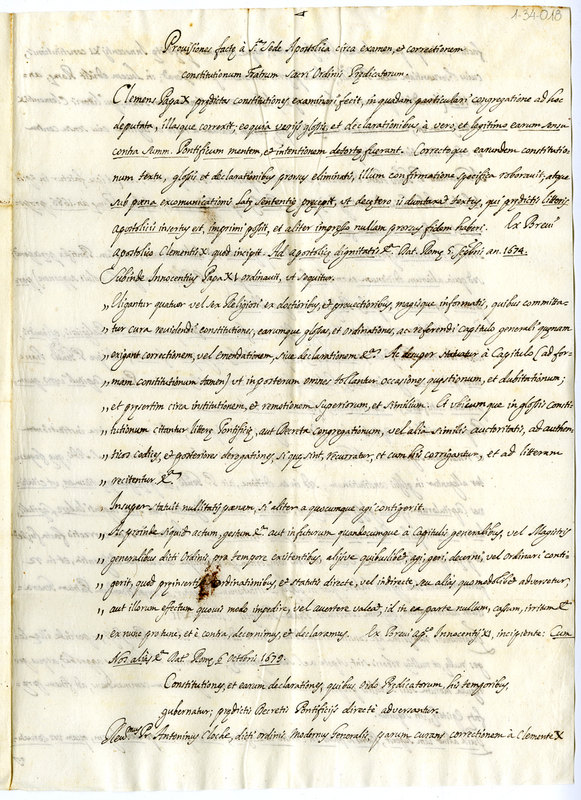 1-34-018
Provisiones factę à S.ta Sede Apostolica circa examen, et correctionem
constitutionum Fratrum Sacri Ordinis Prędicatorum.
Clemens Papa X prędictas constitutiones examinari fecit, in quadam particulari congregatione ad hoc
deputata, illasque correxit; eo quia varijs glossis, et declarationibus, à vero, et legitimo earum sensu
contra Summ. Pontificum mentem, et intentionem detortę fuerant. Correctoque earundem constitutio-
num textu, glossis et declarationibus prorsus eliminatis, illum confirmatione specifica roboravit, atque
sub pœna excomunicationi latę sententię pręcepit, ut de cętero ij duntaxat textus, qui prędictis litteris
apostolicis insertus est, imprimi possit, et aliter impresso nullam prorsus fidem haberi. Ex Brevi
apostolico Clementis X quod incipit. Ad apostolicę dignitatis &. Dat. Romę 5. 7bris an. 1674.
Subinde Innocentius Papa XI ordinavit, ut sequitur.
„ Eligantur quatuor vel sex Religiosi ex doctioribus, et provectioribus, magisque informatis, quibus committa-
„ tur cura revidendi constitutiones, earumque glossas, et ordinationes, ac referendi Capitulo generali quęnam
„ exigant correctionem, vel emendationem, sive declarationem &.a Ac semper statuatur à Capitulo (ad for-
„ mam constitutionum tamen) ut in posterum omnes tollantur occasiones quęstionum, et dubitationum;
„ et pręsertim circa institutionem, et remotionem Superiorum, et similium. Et ubicumque in glossis Consti-
„ tutionum citantur litterę Pontificię, aut Decreta Congregationum, vel alia similis auctoritas, ad authen-
„ ticos codices, et posteriores derogationes, si quę sint, recurratur, et cum his corrigantur, et ad litteram
„ recitentur &.a
Insuper statuit nullitatis pœnam, si aliter a quocumque agi contigerit.
„ Ac proinde siquid actum, gestum &.a aut in futurum quandocumque à Capitulis generalibus, vel Magistris
„ generalibus dicti Ordinis, pro tempore existentibus, alijsve quibuslibet, agi, geri, decerni, vel ordinari conti-
„ gerit, quod pręinsertis ordinationibus, et statutis directe, vel indirecte, seu alias quomodolibet adversetur,
„ aut illorum effectum quovis modo impedire, vel avertere valeat, id in ea parte nullum, cassum, irritum &.a
„ ex nunc pro tunc, et è contra, decernimus et declaramus. Ex Brevi ap.co Innocentij XI, incipiente: Cum
Nos aliàs &.a Dat. Romę 6 Octobris 1679.
Constitutiones, et earum declarationes, quibus Ordo Prędicatorum, his temporibus,
gubernatur; prędictis Decretis Pontificijs directè adversantur.
Rev.mus Pr. Antoninus Cloche, dicti ordinis Modernus Generalis, parum curans correctionem à Clemente X